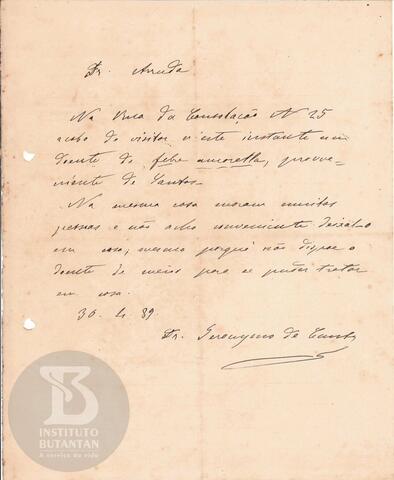 Dr. Arruda
Na Rua da Consolação N 25
acabo de visitar n'este instante um
doente de febre amarella, prove-
niente de Santos.
Na mesma casa moram muitas
pessoas e não acho conveniente deixal-o
em casa, mesmo porque não dispõe o
doente de meios para se poder tratar
em casa.
30. 4. 89.
Dr. Geronymo de
INSTITUTO
BUTANTAN
A serviço da vida